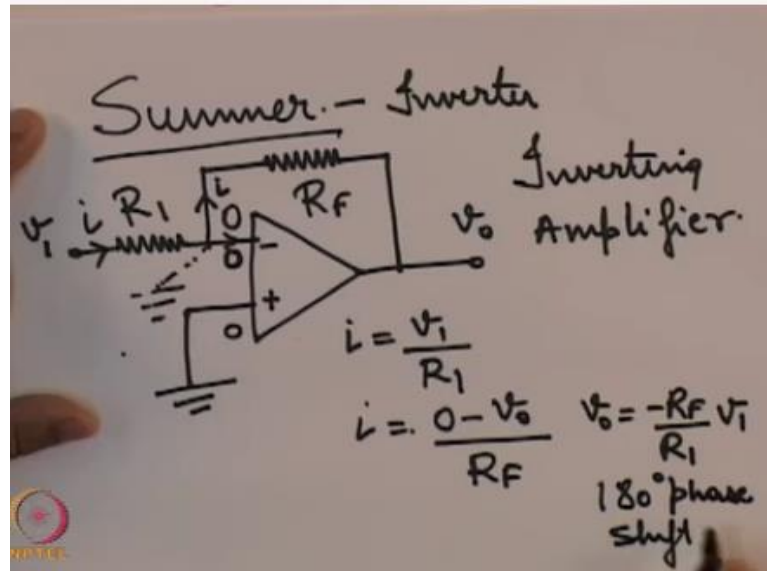 Summer. - Inverter
Inverting
Amplifier.
i
R_F
v_1 i R_1
0
0 -
v_0
0 +
i = v_1 / R_1
i = 0 - v_0 / R_F
v_0 = -R_F / R_1 v_1
180° phase
shift
NPTEL